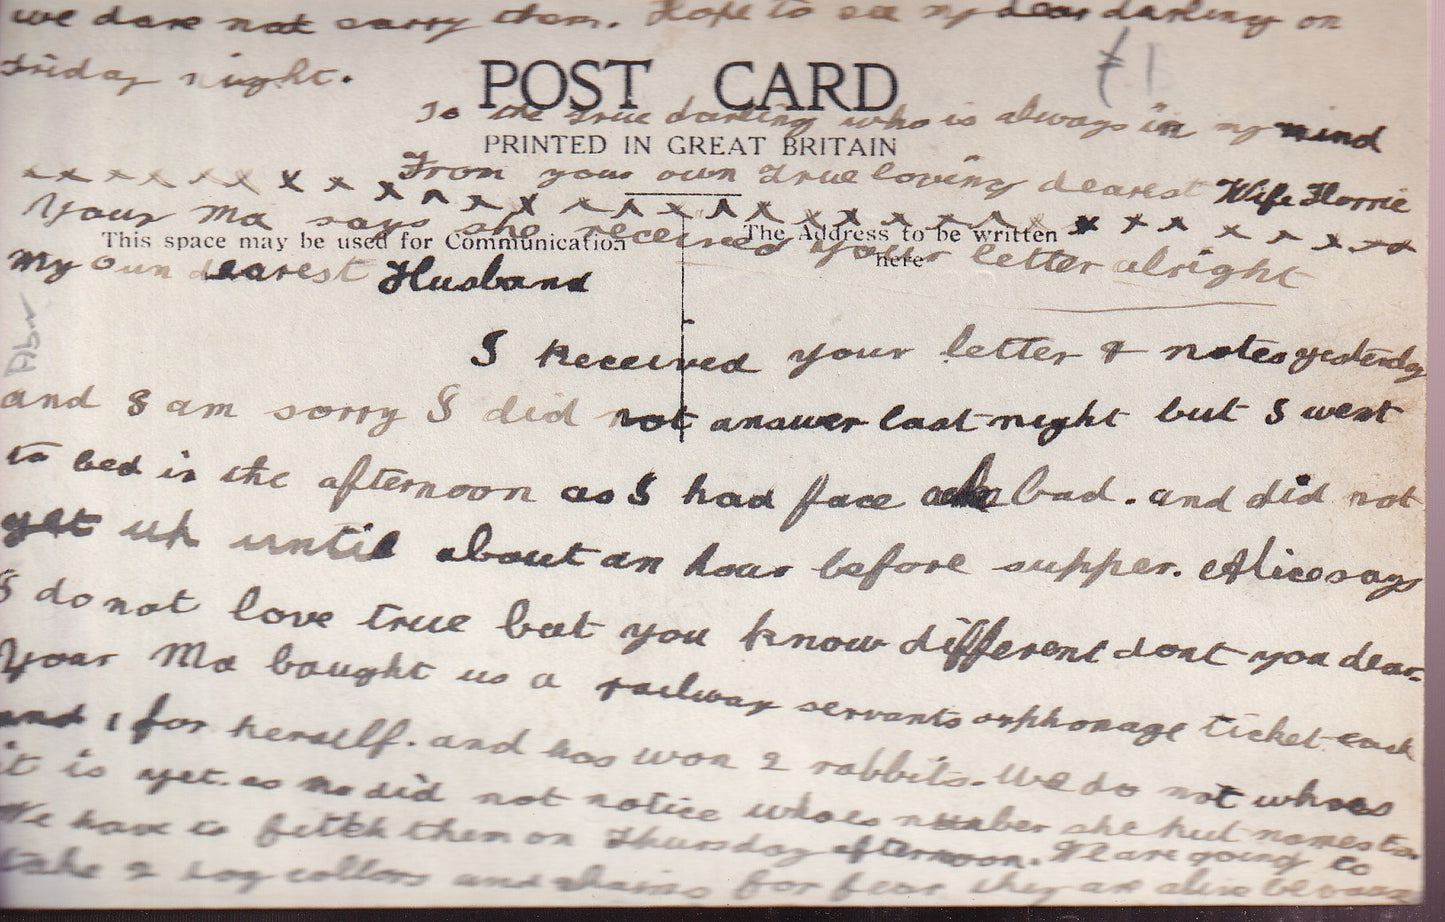 we dare not carry them. Hope to see my dear darling on
Friday night.
£1
POST CARD
To the true darling who is always in my mind
PRINTED IN GREAT BRITAIN
From your own true loving dearest Wife Florrie
x x x x x x x x x x x x x x x x x x x x x x x x x x x x x x
Your Ma says she received your letter alright
This space may be used for Communication
The Address to be written
here
My own dearest Husband
I received your letter & notes yesterday
and I am sorry I did not answer last night but I went
to bed in the afternoon as I had face ache bad. and did not
get up until about an hour before supper. Alice says
I do not love true but you know different dont you dear.
Your Ma bought us a railway servants orphanage ticket each
and 1 for herself. and has won 2 rabbits. We do not whoes
it is yet. as Ma did not notice whoes number she put names to.
We have to fetch them on Thursday afternoon. We are going to
take 2 dog collars and chains for fear they are alive because